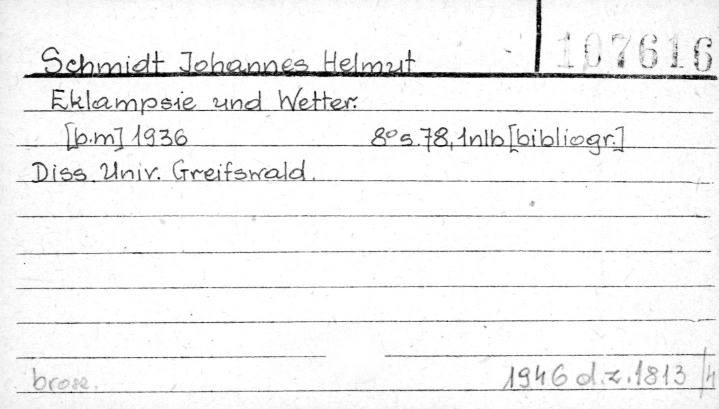 Schmidt Johannes Helmut 107616
Eklampsie und Wetter.
[b.m] 1936 8° s. 78, 1nlb [bibliogr.]
Diss. Univ. Greifswald.
brosz. 1946 d.z. 1813 /4